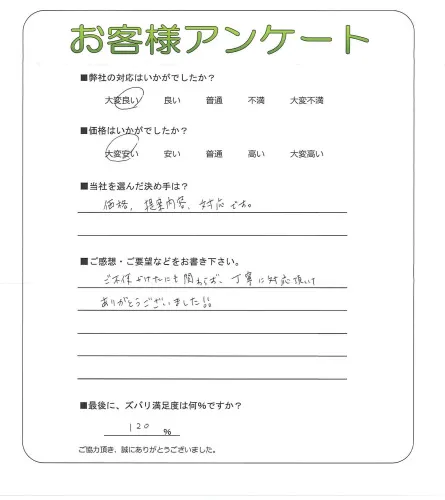 お客様アンケート
■弊社の対応はいかがでしたか？
大変良い 良い 普通 不満 大変不満
■価格はいかがでしたか？
大変安い 安い 普通 高い 大変高い
■当社を選んだ決め手は？
価格、提案内容、対応です。
■ご感想・ご要望などをお書き下さい。
にも関わらず、丁寧に対応頂いて
ありがとうございました!!
■最後に、ズバリ満足度は何%ですか？
120 %
ご協力頂き、誠にありがとうございました。